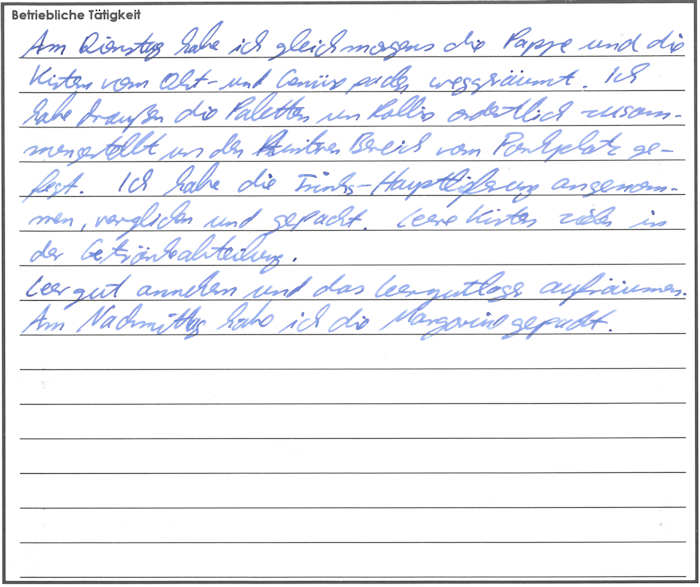 Betriebliche Tätigkeit
Am Dienstag habe ich gleich morgens die Pappe und die
Kisten vom Obst- und Gemüse packen weggeräumt. Ich
habe draußen die Paletten un Rollis ordentlich zusam-
mengestellt un den Bereich vom Parkplatz ge-
fegt. Ich habe die Frischs-Hauptlieferung angenom-
men, verglichen und gepackt. Leere Kisten ziehen in
der Getränkeabteilung.
Leergut annehmen und das Leergutlager aufräumen.
Am Nachmittag habe ich die Margarine gepackt.